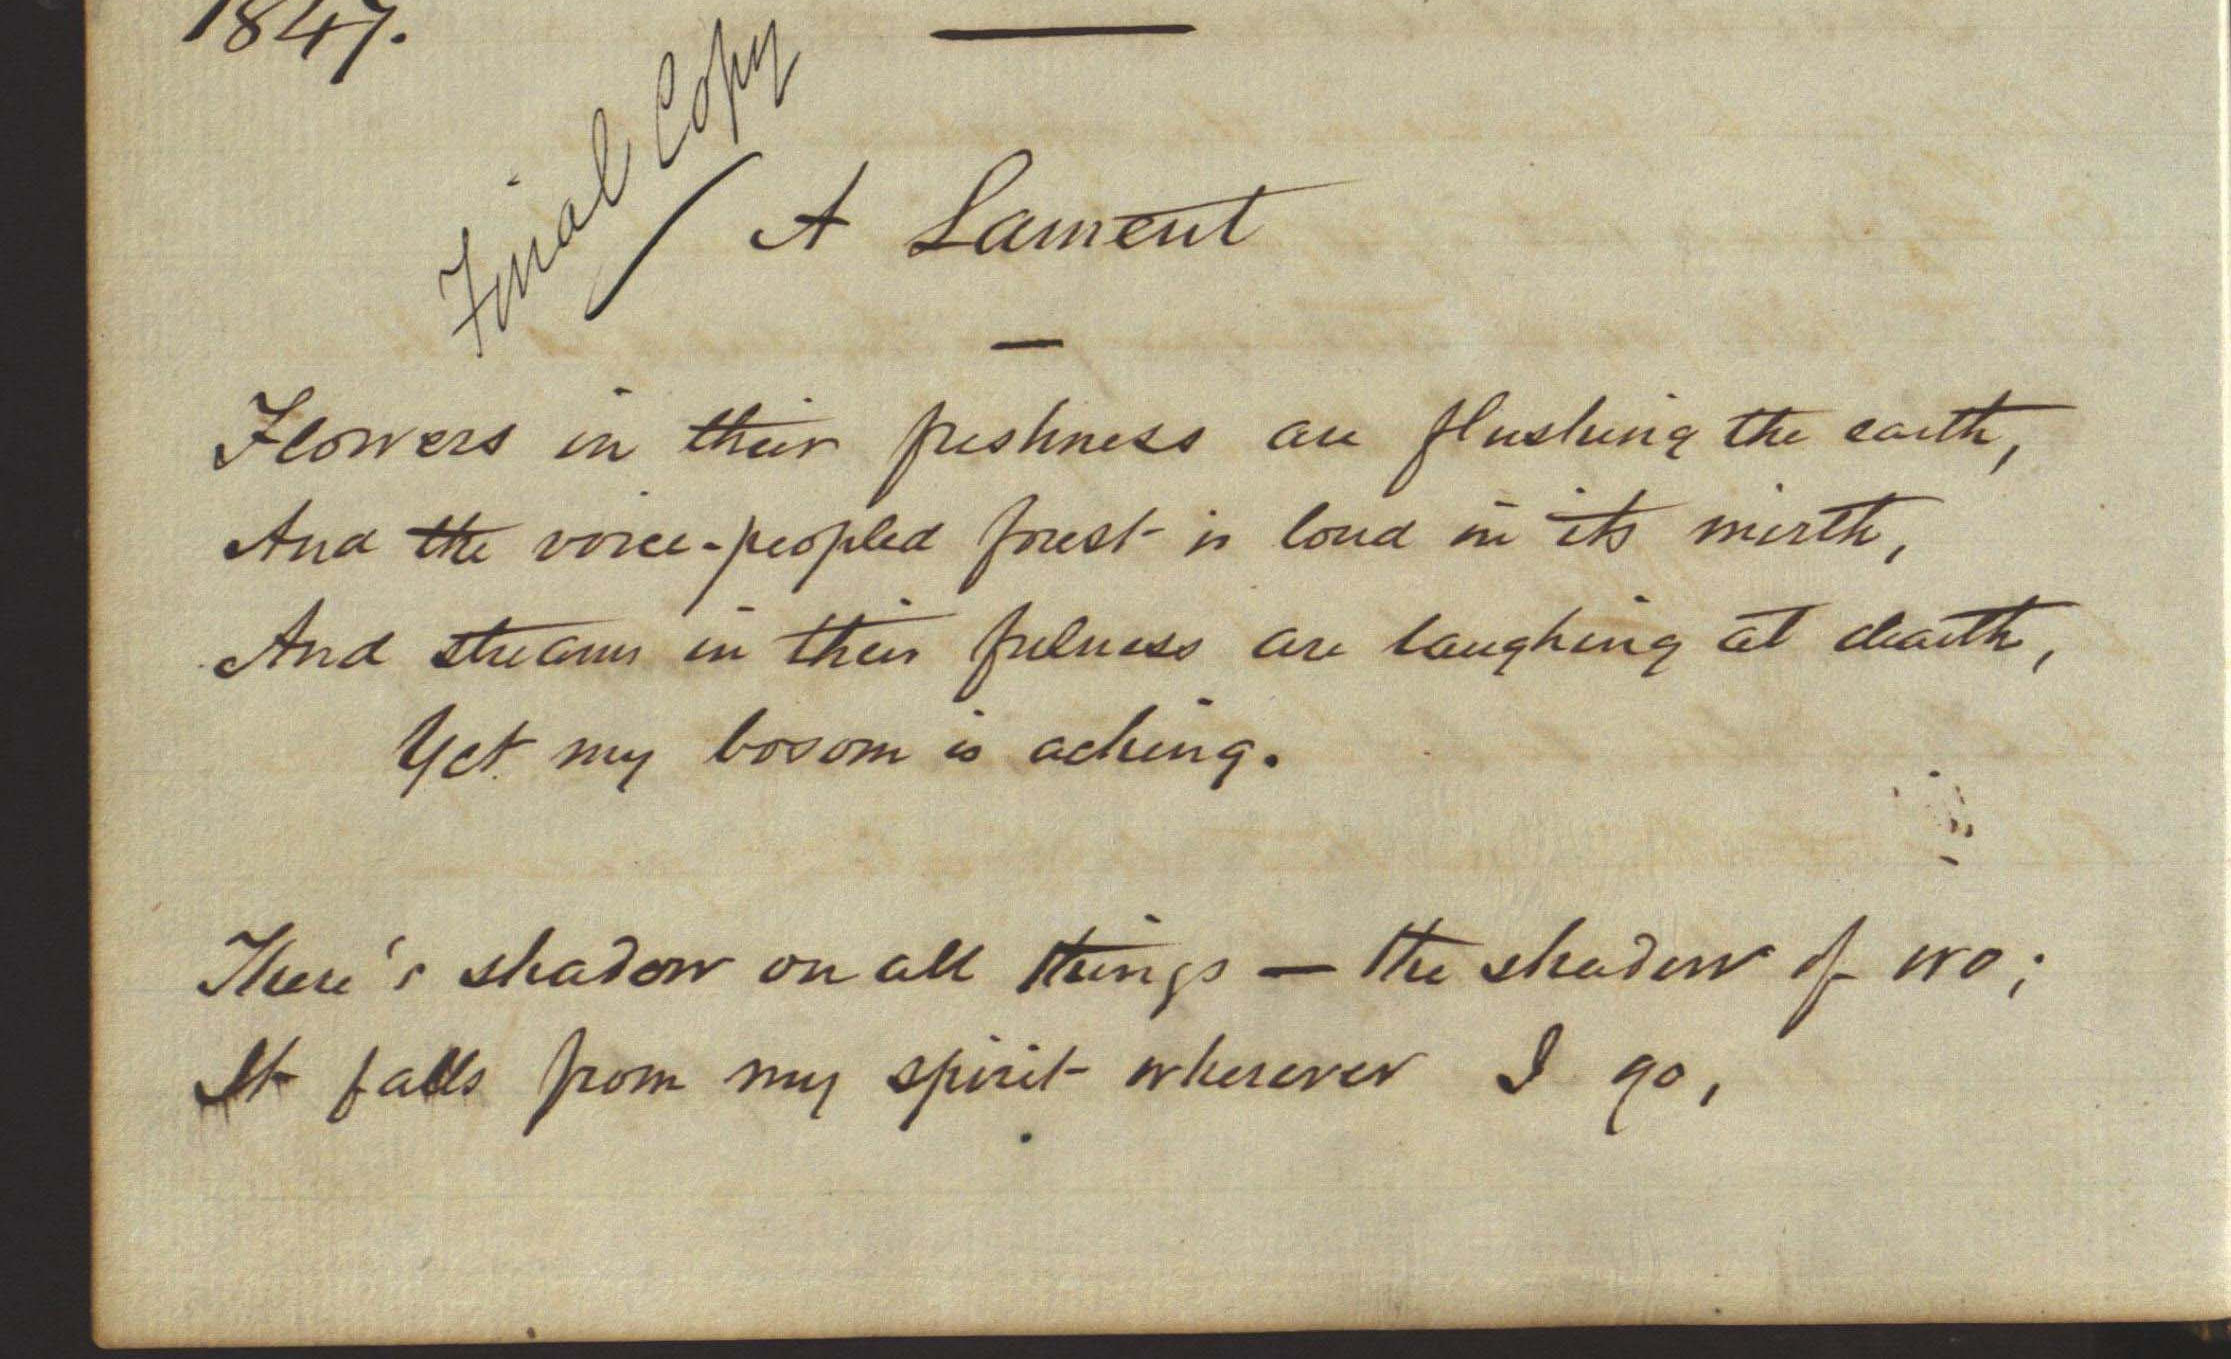 1847.
Final Copy
A Lament
Flowers in their freshness are flushing the earth,
And the voice-peopled forest is loud in its mirth,
And streams in their fulness are laughing at dearth,
Yet my bosom is aching.
There's shadow on all things — the shadow of wo;
It falls from my spirit wherever I go,